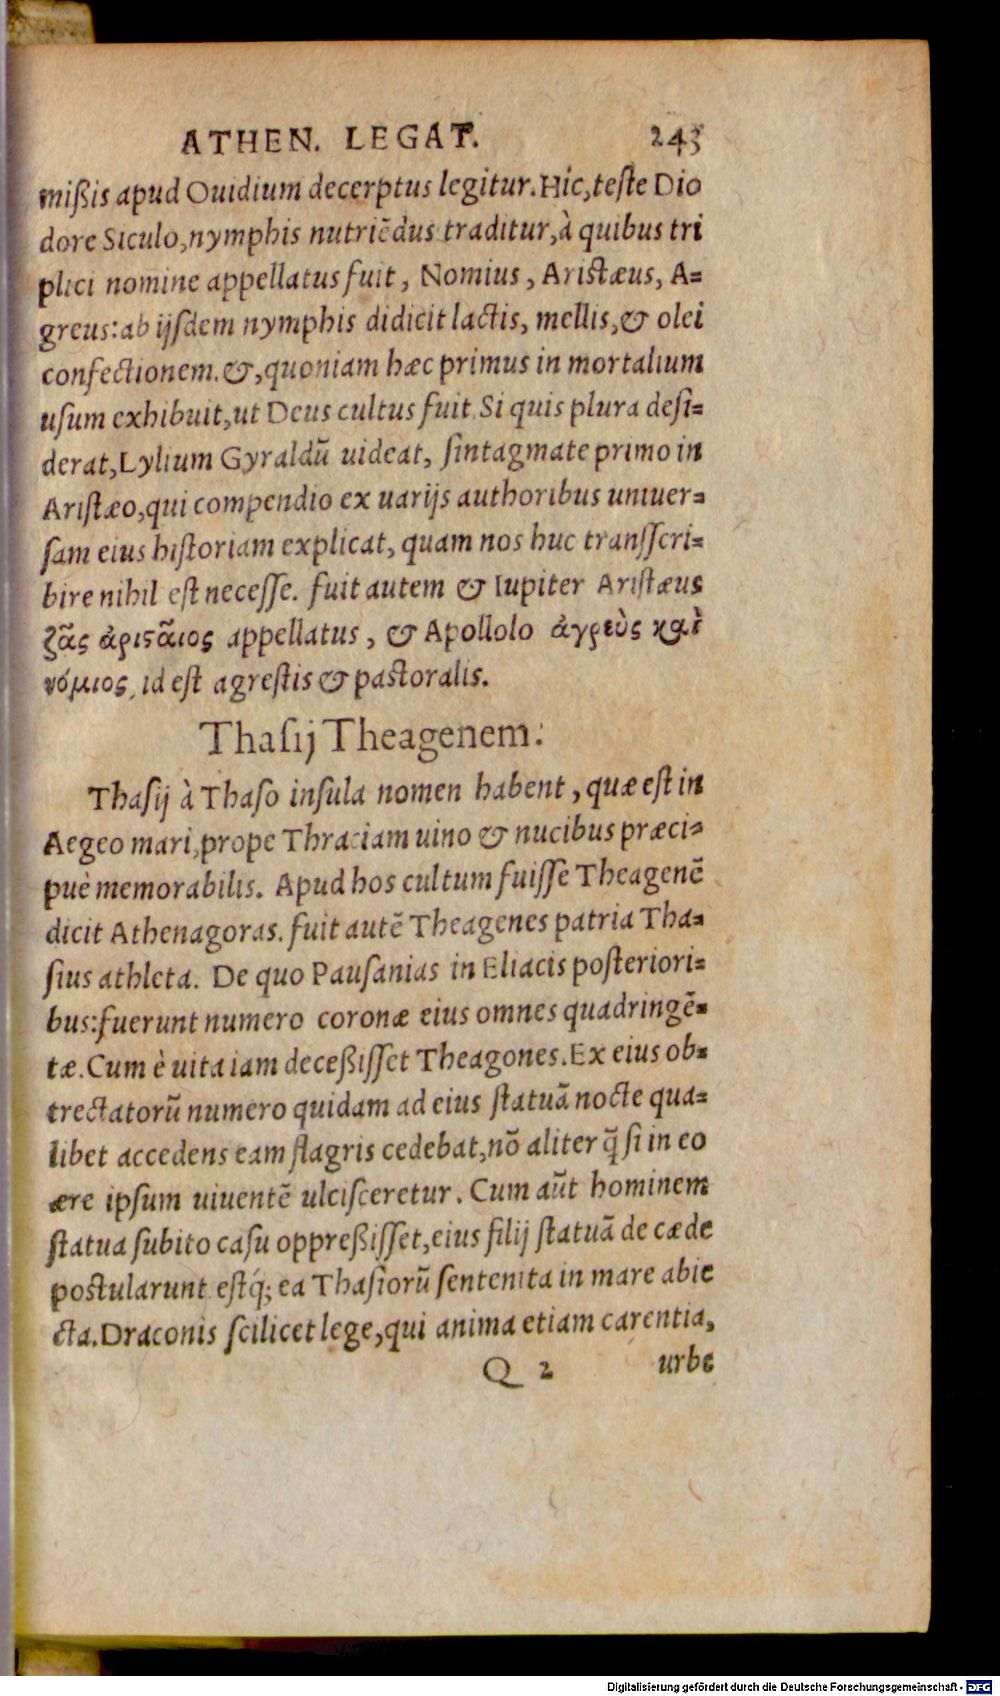 ATHEN. LEGAT. 243
mißis apud Ouidium decerptus legitur. Hic, teſte Dio
dore Siculo, nymphis nutriẽdus traditur, à quibus tri
plici nomine appellatus fuit, Nomius, Ariſtæus, A=
greus: ab ijſdem nymphis didicit lactis, mellis, & olei
confectionem. &, quoniam hæc primus in mortalium
uſum exhibuit, ut Deus cultus fuit. Si quis plura deſi=
derat, Lylium Gyraldũ uideat, ſintagmate primo in
Ariſtæo, qui compendio ex uarijs authoribus uniuer=
ſam eius hiſtoriam explicat, quam nos huc tranſſcri=
bire nihil eſt neceſſe. fuit autem & Iupiter Ariſtæus
ζᾶς ἀριςᾶιος appellatus, & Apollolo ἀγρεὺς καὶ
νόμιος, id eſt agreſtis & paſtoralis.
Thaſij Theagenem.
Thaſij à Thaſo inſula nomen habent, quæ eſt in
Aegeo mari, prope Thraciam uino & nucibus præci=
puè memorabilis. Apud hos cultum fuiſſe Theagenẽ
dicit Athenagoras. fuit autẽ Theagenes patria Tha=
ſius athleta. De quo Pauſanias in Eliacis poſteriori=
bus: fuerunt numero coronæ eius omnes quadringẽ=
tæ. Cum è uita iam deceßiſſet Theagones. Ex eius ob=
trectatorũ numero quidam ad eius ſtatuã nocte qua=
libet accedens eam flagris cedebat, nõ aliter q̃ ſi in eo
ære ipſum uiuentẽ ulciſceretur. Cum aũt hominem
ſtatua ſubito caſu oppreßiſſet, eius filij ſtatuã de cæde
poſtularunt eſtq́; ea Thaſiorũ ſentenita in mare abie
cta. Draconis ſcilicet lege, qui anima etiam carentia,
Q 2 urbe
Digitalisierung gefördert durch die Deutsche Forschungsgemeinschaft - DFG